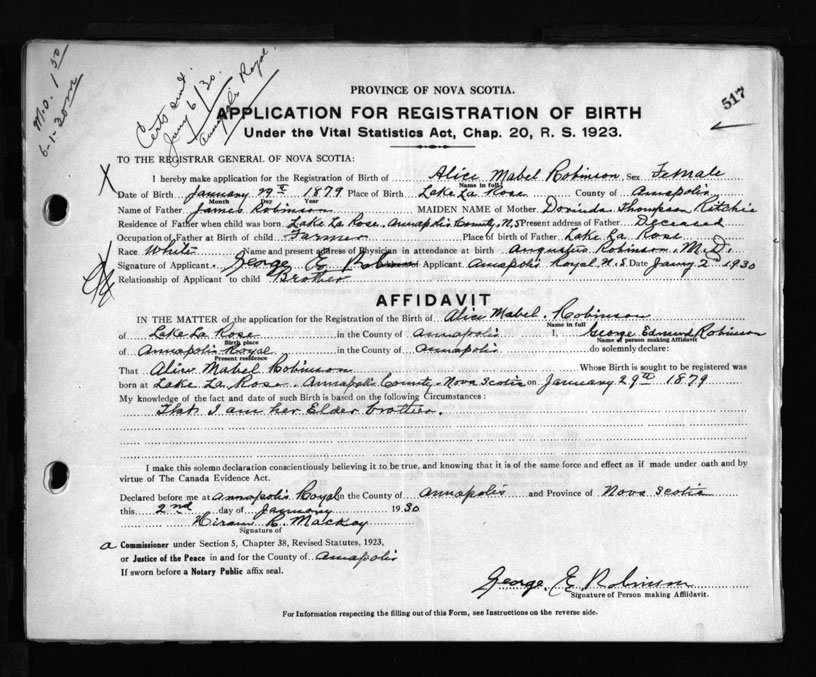 M.O. 1 50
6-1-30
Certs sent
Jany 6/30.
Annapolis Royal.
517
PROVINCE OF NOVA SCOTIA.
APPLICATION FOR REGISTRATION OF BIRTH
Under the Vital Statistics Act, Chap. 20, R. S. 1923.
TO THE REGISTRAR GENERAL OF NOVA SCOTIA:
I hereby make application for the Registration of Birth of Alice Mabel Robinson Sex Female
Name in full
Date of Birth January 29th 1879 Place of Birth Lake La Rose County of Annapolis
Month Day Year
Name of Father James Robinson MAIDEN NAME of Mother Dorinda Thompson Ritchie
Residence of Father when child was born Lake La Rose, Annapolis County, N.S Present address of Father Deceased
Occupation of Father at Birth of child Farmer Place of birth of Father Lake La Rose
Race White Name and present address of Physician in attendance at birth Augustus Robinson M.D.
Signature of Applicant George E. Robinson Applicant Annapolis Royal N.S. Date Jany 2nd 1930
Relationship of Applicant to child Brother
AFFIDAVIT
IN THE MATTER of the application for the Registration of the Birth of Alice Mabel Robinson
Name in full
of Lake La Rose in the County of Annapolis I, George Edmund Robinson
Birth place Name of person making Affidavit
of Annapolis Royal in the County of Annapolis do solemnly declare:
Present residence
That Alice Mabel Robinson Whose Birth is sought to be registered was
born at Lake La Rose Annapolis County Nova Scotia on January 29th 1879
My knowledge of the fact and date of such Birth is based on the following Circumstances:
That I am her Elder brother.
I make this solemn declaration conscientiously believing it to be true, and knowing that it is of the same force and effect as if made under oath and by
virtue of The Canada Evidence Act.
Declared before me at Annapolis Royal in the County of Annapolis and Province of Nova Scotia
this 2nd day of January 1930
Hiram R. Mackay
Signature of
a Commissioner under Section 5, Chapter 38, Revised Statutes, 1923,
or Justice of the Peace in and for the County of Annapolis
If sworn before a Notary Public affix seal.
George E Robinson
Signature of Person making Affidavit.
For Information respecting the filling out of this Form, see Instructions on the reverse side.